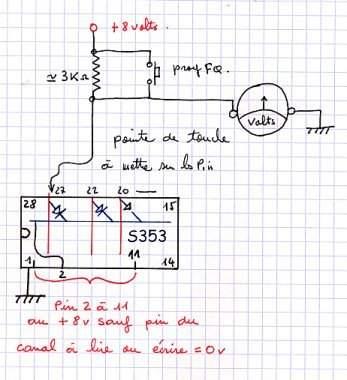 +8 volts.
≃ 3KΩ
prog FQ.
volts
pointe de touche
à mettre sur les Pin
27 22 20
28 15
S353
11
1 2 14
Pin 2 à 11
au +8v sauf pin du
canal à lire ou écrire = 0v